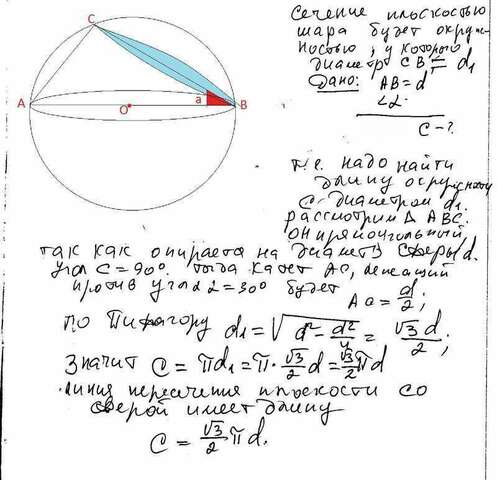 C
A
O
a
B
Сечение плоскостью
шара будет окруж-
ностью, у которого
диаметр CB = d₁
Дано: AB = d
∠α
C - ?
Т.е. надо найти
длину окружности
с диаметром d₁.
рассмотрим Δ ABC.
он прямоугольный,
так как опирается на диаметр сферы d.
Угол C = 90°. тогда катет AC, лежащий
против угла α = 30° будет
AC = d/2;
по Пифагору d₁ = √(d² - d²/4) = √3 d/2;
Значит C = πd₁ = π · √3/2 d = √3/2 πd
Линия пересечения плоскости со
сферой имеет длину
C = √3/2 πd.